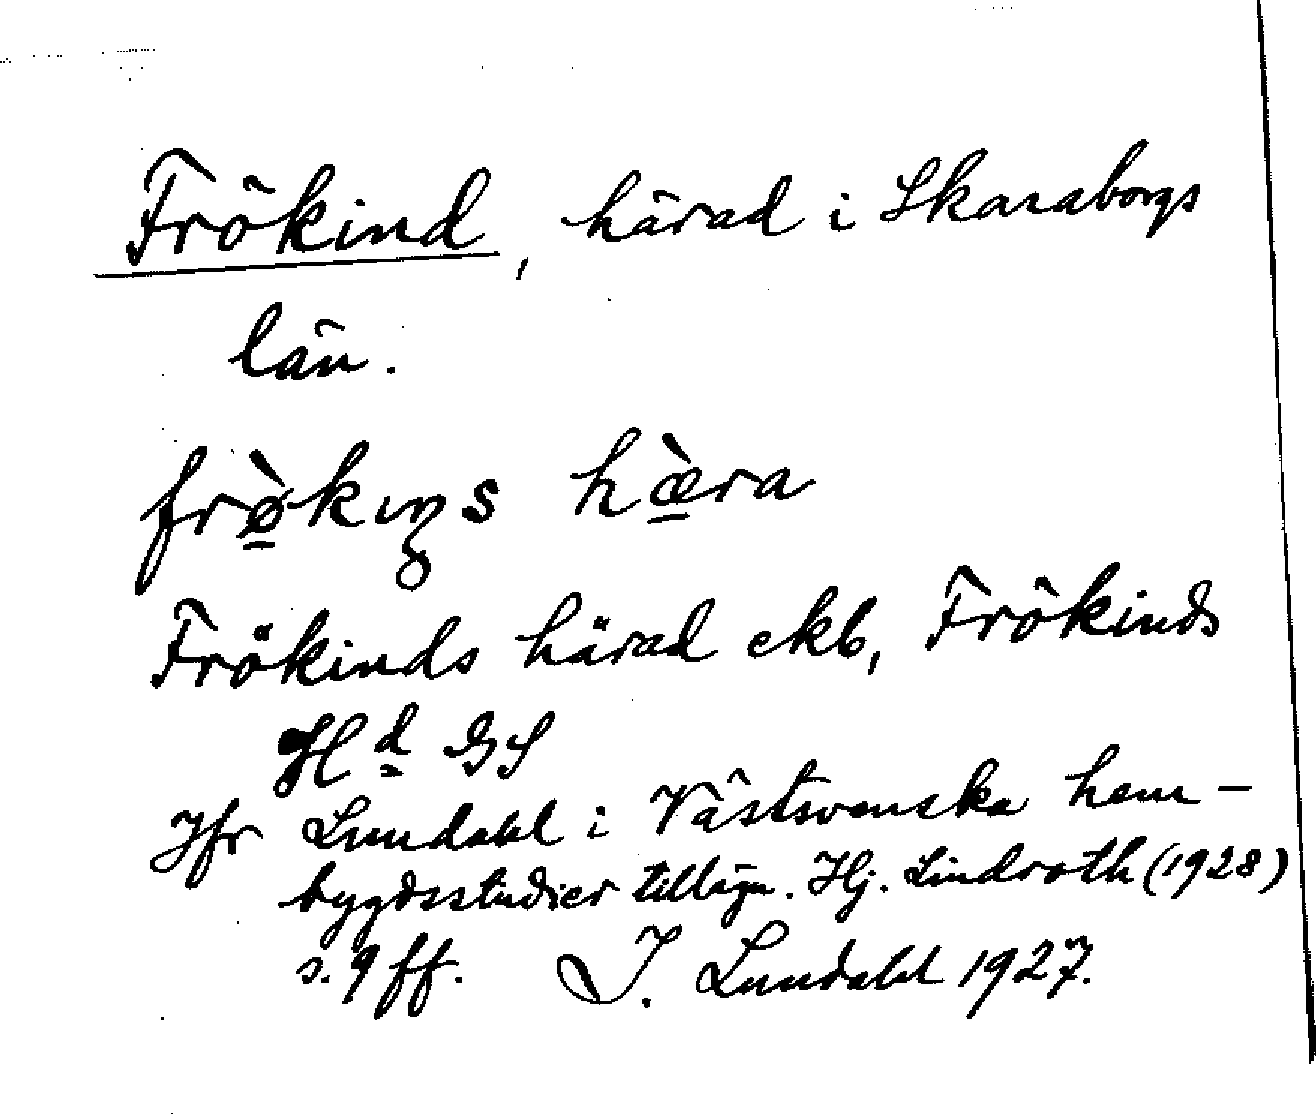 Frökind, härad i Skaraborgs
län.
frø̀kıŋs hæ̀ra
Frökinds härad ekb, Frökinds
Hd GS
Jfr Lundahl i Västsvenska hem-
bygdsstudier tillägn. Hj. Lindroth (1928)
s. 9 ff. I. Lundahl 1927.